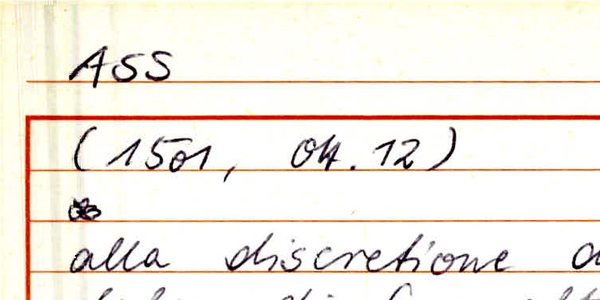 ASS
(1501, Okt. 12)
alla discretione